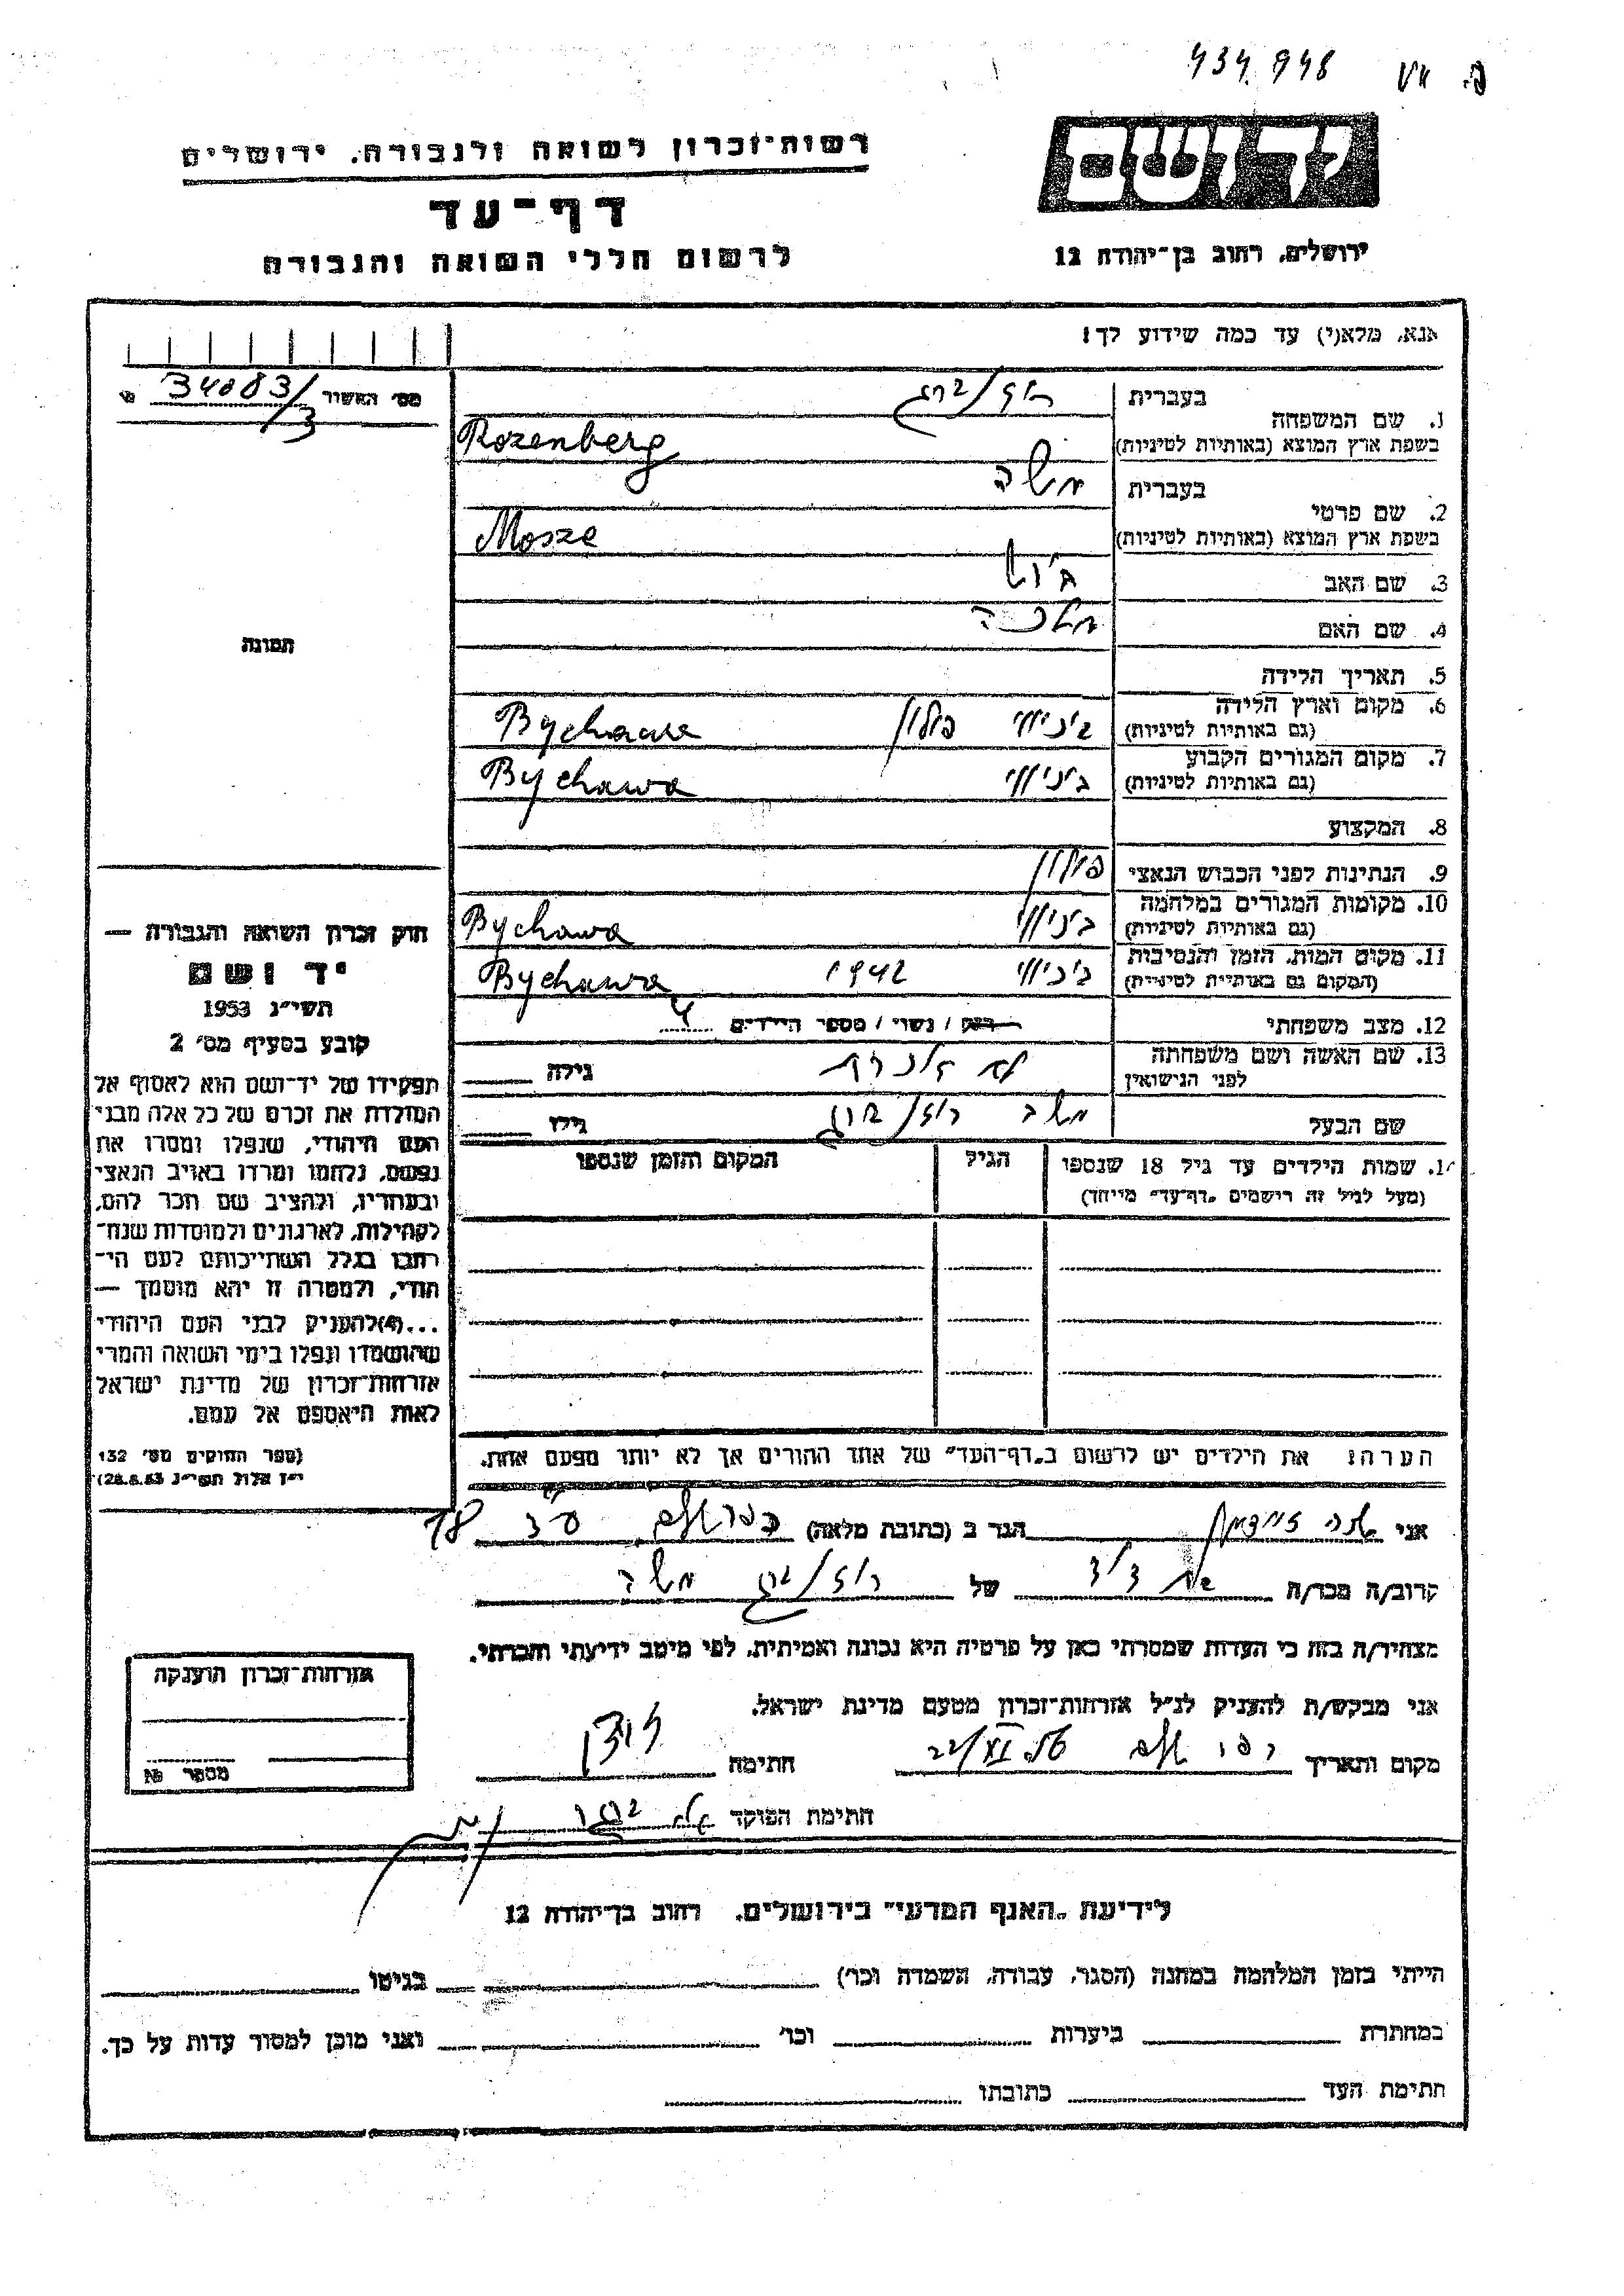 434.948
רשות־זכרון לשואה ולגבורה. ירושלים
דף־עד
לרשום חללי השואה והגבורה
יד ושם
ירושלים, רחוב בן־יהודה 12
אנא, מלא(י) עד כמה שידוע לך!
מס׳ האשור 34083/3
תמונה
חוק זכרון השואה והגבורה —
יד ושם
תשי״ג 1953
קובע בסעיף מס׳ 2
תפקידו של יד־ושם הוא לאסוף אל
המולדת את זכרם של כל אלה מבני
העם היהודי, שנפלו ומסרו את
נפשם, נלחמו ומרדו באויב הנאצי
ובעוזריו, ולהציב שם וזכר להם,
לקהילות, לארגונים ולמוסדות שנח־
רבו בגלל השתייכותם לעם הי־
הודי, ולמטרה זו יהא מוסמך —
...(4)להעניק לבני העם היהודי
שהושמדו ונפלו בימי השואה והמרי
אזרחות־זכרון של מדינת ישראל
לאות היאספם אל עמם.
(ספר החוקים מס׳ 132
י״ז אלול תשי״ג 28.8.53)
1. שם המשפחה
בעברית רוזנברג
בשפת ארץ המוצא (באותיות לטיניות) Rozenberg
2. שם פרטי
בעברית משה
בשפת ארץ המוצא (באותיות לטיניות) Mosze
3. שם האב
4. שם האם מלכה
5. תאריך הלידה
6. מקום וארץ הלידה ביכווי פולין Bychawa
(גם באותיות לטיניות)
7. מקום המגורים הקבוע ביכווי Bychawa
(גם באותיות לטיניות)
8. המקצוע
9. הנתינות לפני הכבוש הנאצי פולין
10. מקומות המגורים במלחמה ביכווי Bychawa
(גם באותיות לטיניות)
11. מקום המות, הזמן והנסיבות ביכווי 1942 Bychawa
(המקום גם באותיות לטיניות)
12. מצב משפחתי רווק / נשוי / מספר הילדים 4
13. שם האשה ושם משפחתה
לפני הנישואין
גילה
שם הבעל משה רוזנברג גילו
14. שמות הילדים עד גיל 18 שנספו הגיל המקום והזמן שנספו
(מעל לגיל זה רישמים „דף־עד״ מייחד)
הערה: את הילדים יש לרשום ב„דף־העד״ של אחד ההורים אך לא יותר מפעם אחת.
אני הגר ב (כתובת מלאה) 18
קרוב/ה מכר/ה של רוזנברג משה
מצהיר/ה בזה כי העדות שמסרתי כאן על פרטיה היא נכונה ואמיתית, לפי מיטב ידיעתי והכרתי.
אני מבקש/ת להעניק לנ״ל אזרחות־זכרון מטעם מדינת ישראל.
מקום ותאריך חתימה
חתימת הפוקד
אזרחות־זכרון הוענקה
מספר №
לידיעת „האגף המדעי״ בירושלים, רחוב בן־יהודה 12
הייתי בזמן המלחמה במחנה (הסגר, עבודה, השמדה וכו׳) בגיטו
במחתרת ביערות וכו׳ ואני מוכן למסור עדות על כך.
חתימת העד כתובתו